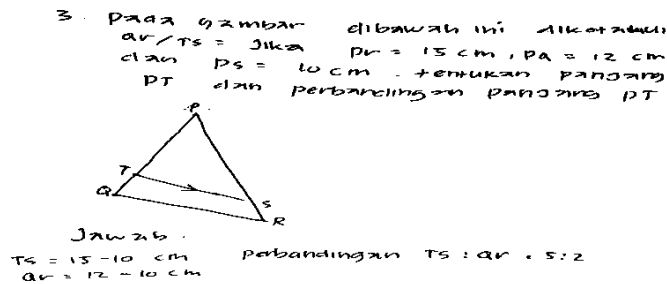 3. Pada gambar dibawah ini diketahui
QR/TS = Jika PR = 15 cm, PQ = 12 cm
dan PS = 10 cm. tentukan panjang
PT dan perbandingan panjang PT
P
T
Q
S
R
Jawab.
TS = 15 - 10 cm Perbandingan TS : QR = 5:2
QR = 12 - 10 cm